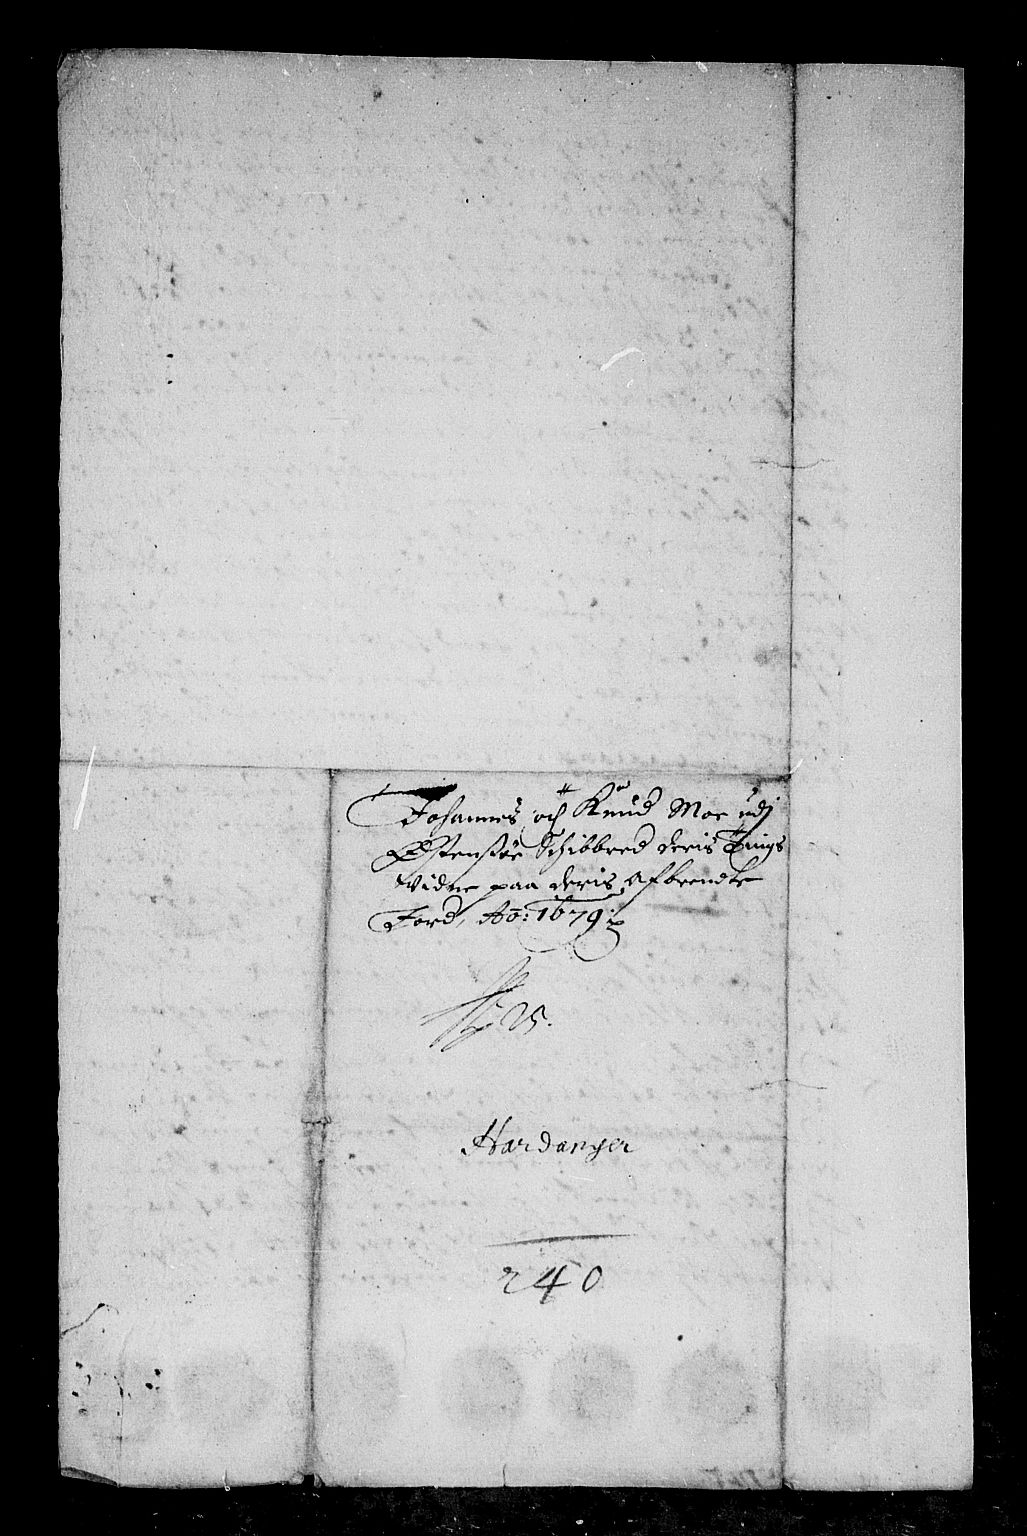 Johannes och Knud Moe udj
Østensøe Schibbred deris Tings
Vidne paa deris Afbrendte
Jord, Ao: 1679:
25.
Hardanger
240